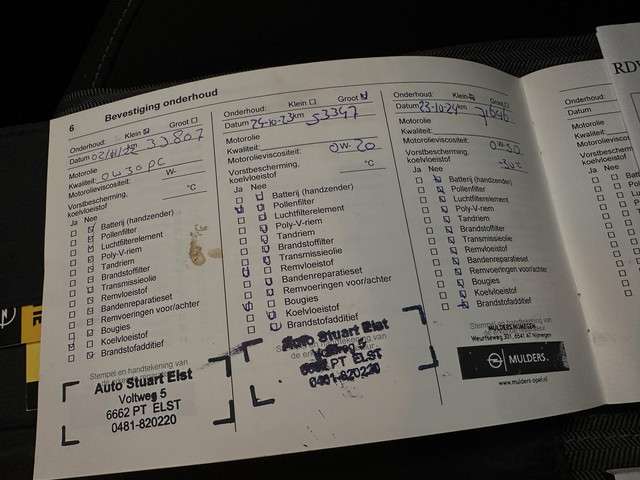 6
Bevestiging onderhoud
Onderhoud: Klein Groot
Datum 02/11/22 39807
Motorolie
Kwaliteit: 0W30 PC
Motorolieviscositeit: W-
Vorstbescherming, °C
koelvloeistof
Ja Nee
Batterij (handzender)
Pollenfilter
Luchtfilterelement
Poly-V-riem
Tandriem
Brandstoffilter
Transmissieolie
Remvloeistof
Bandenreparatieset
Remvoeringen voor/achter
Bougies
Koelvloeistof
Brandstofadditief
Stempel en handtekening van
Auto Stuart Elst
Voltweg 5
6662 PT ELST
0481-820220
Onderhoud: Klein Groot
Datum 24-10-23 km 53347
Motorolie
Kwaliteit:
Motorolieviscositeit: 0W-20
Vorstbescherming, °C
koelvloeistof
Ja Nee
Batterij (handzender)
Pollenfilter
Luchtfilterelement
Poly-V-riem
Tandriem
Brandstoffilter
Transmissieolie
Remvloeistof
Bandenreparatieset
Remvoeringen voor/achter
Bougies
Koelvloeistof
Brandstofadditief
Auto Stuart Elst
Voltweg 5
6662 PT ELST
0481-820220
Onderhoud: Klein Groot
Datum 23-10-24 km
Motorolie
Kwaliteit:
Motorolieviscositeit:
Vorstbescherming,
koelvloeistof
Ja Nee
Batterij (handzender)
Pollenfilter
Luchtfilterelement
Poly-V-riem
Tandriem
Brandstoffilter
Transmissieolie
Remvloeistof
Bandenreparatieset
Remvoeringen voor/achter
Bougies
Koelvloeistof
Brandstofadditief
Stempel en handtekening van
MULDERS NIJMEGEN
Weurtseweg 331, 6541 AT Nijmegen
MULDERS.
www.mulders-opel.nl
Onderhoud:
Datum
Motorolie
Kwaliteit:
Motorolieviscositeit
Vorstbescherming
koelvloeistof
Ja Nee